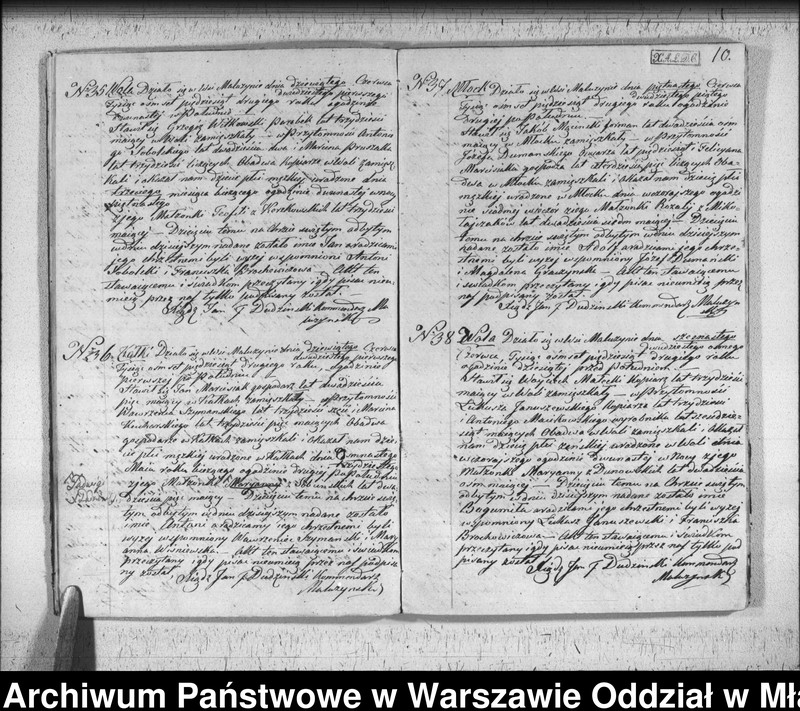 № 35. Wola Działo się w Wsi Malużynie dnia dziewiątego Czerwca
dwudziestego pierwszego
Tysiąc ośmset pięćdziesiąt drugiego roku o godzinie
z Południa
Stawił się Grzegorz Witkowski Parobek lat trzydzieści
maiący w Woli zamieszkały — w Przytomności Antonie-
go Sobolskiego lat dwadzieścia dwa i Marcina Pruszaka
lat trzydzieści liczących, Obadwa Kopiarze w Woli zamiesz-
kali i okazał nam dziecię płci męzkiej urodzone dnia
miesiąca bieżącego o godzinie dwunastej w nocy
z jego Małżonki Teofili z Korzkowskich lat trzydzieści
maiącej — Dziecięciu temu na Chrzcie Swiętym odbytym
w dniu dzisiejszym nadane zostało imie Jan a rodzicami
jego chrzestnemi byli wyżej wspomniony Antoni
Sobolski i Franciszka Brochoiczowa — Akt ten
Stawaiącemu i Swiadkom przeczytany i gdy pisać nieu-
mieią przez nas tylko podpisany został
Xiądz Jan F Dudziński Kommendarz Ma
łużyński
№ 36. Kałki Działo się w Wsi Malużynie dnia dziewiątego Czerwca
dwudziestego pierwszego
Tysiąc ośmset pięćdziesiąt drugiego roku, o godzinie
pierwszej z Południa
Stawił się Jan Marciiak gospodarz lat dwadzieścia
pięć maiący w Kałkach zamieszkały — w Przytomności
Wawrzeńca Szymańskiego lat trzydzieści sześć i Marcina
Kucharskiego lat trzydzieści pięć maiących Obadwa
gospodarze w Kałkach zamieszkali i okazał nam dzie-
cię płci męzkiej urodzone w Kałkach dnia Osmnastego
trzydziestego
Maia roku bieżącego o godzinie drugiej po Południu
z jego Małżonki Maryanny z lat dwa-
Jadwigi
dzieścia pięć maiącej — Dziecięciu temu na Chrzcie świę-
tym odbytym w dniu dzisiejszym nadane zostało
imie Antoni a rodzicami jego chrzestnemi byli
wyżej wspomniony Wawrzeniec Szymański i Mary-
anna Wiśniewska — Akt ten stawaiącemu i swiadkom
przeczytany i gdy pisać nieumieią przez nas podpisa-
ny został, Xiądz Jan F Dudziński Kommendarz
Malużyński
10.
№ 37. Młock Działo się w Wsi Malużynie dnia piętnastego Czerwca
dwudziestego piątego
Tysiąc ośmset pięćdziesiąt drugiego roku o godzinie
drugiej po Południu
Stawił się Jakób Mosiński forman lat dwadzieścia ośm
maiący w Młocku zamieszkały — w Przytomności
Józefa Dumańskiego Owczarza lat pięćdziesiąt i Felicyana
Marciiaka gosporza lat czterdzieści pięć liczących Oba-
dwa w Młocku zamieszkali i okazał nam dziecię płci
męzkiej urodzone w Młocku dnia wczorajszego o godzi-
nie siodmej wieczor z jego Małżonki Rozalij z Miko-
łajczaków lat dwadzieścia siedm maiącej — Dziecięciu
temu na chrzcie swiętym odbytym w dniu dzisiejszym
nadane zostało imie Adolf a rodzicami jego chrze-
stnemi byli wyżej wspomniony Józef Dumański
i Magdalena Graczyńska — Akt ten stawaiącemu
i swiadkom przeczytany i gdy pisać nieumieią przez
nas podpisany został
Xiądz Jan F Dudziński Kommendarz Malużyn-
ski
№ 38. Wola Działo się w Wsi Malużynie dnia szesnastego
dwudziestego osmego
Czerwca Tysiąc ośmset pięćdziesiąt drugiego roku
o godzinie dziesiątej przed Południem
Stawił się Woyciech Małecki Kopiarz lat trzydzieści
maiący w Woli zamieszkały — w Przytomności
Łukasza Januszewskiego Kopiarza lat trzydzieści
i Antoniego wyrobnika lat sześćdzie-
siąt maiących Obadwa w Woli zamieszkali i okazał
nam dziecię płci żenskiej urodzone w Woli dnia
wczorajszego o godzinie dwunastej w nocy z jego
Małżonki Maryanny z Dumowskich lat dwadzieścia
ośm maiącej — Dziecięciu temu na Chrzcie Swiętym
odbytym w dniu dzisiejszym nadane zostało imie
Bogumiła a rodzicami jej chrzestnemi byli wyżej
wspomniony Łukasz Januszewski i Franciszka
Brochoiczowa — Akt ten stawaiącemu i Swiadkom
przeczytany i gdy pisać nieumieią przez nas tylko pod-
pisany został Xiądz Jan F Dudziński Kommendarz
Malużyński
Archiwum Państwowe w Warszawie Oddział w Mła